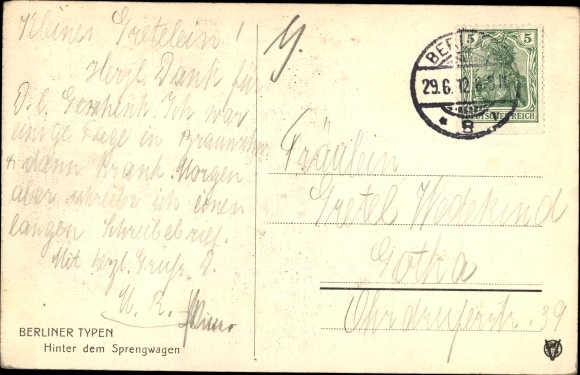 Kleines Gretelein!
Herzl. Dank für
D. l. Geschenk. Ich war
einige Tage in
dann krank. Morgen
aber schreibe ich einen
langen Schreibebrief.
Mit herzl. Gruß. D.
BERLINER TYPEN
Hinter dem Sprengwagen
5 5
DEUTSCHES REICH
BERLIN
29.6.12. 8-9 N
* 8
Fräulein
Gretel Wedekind
Gotha
Ohrdruferstr. 39